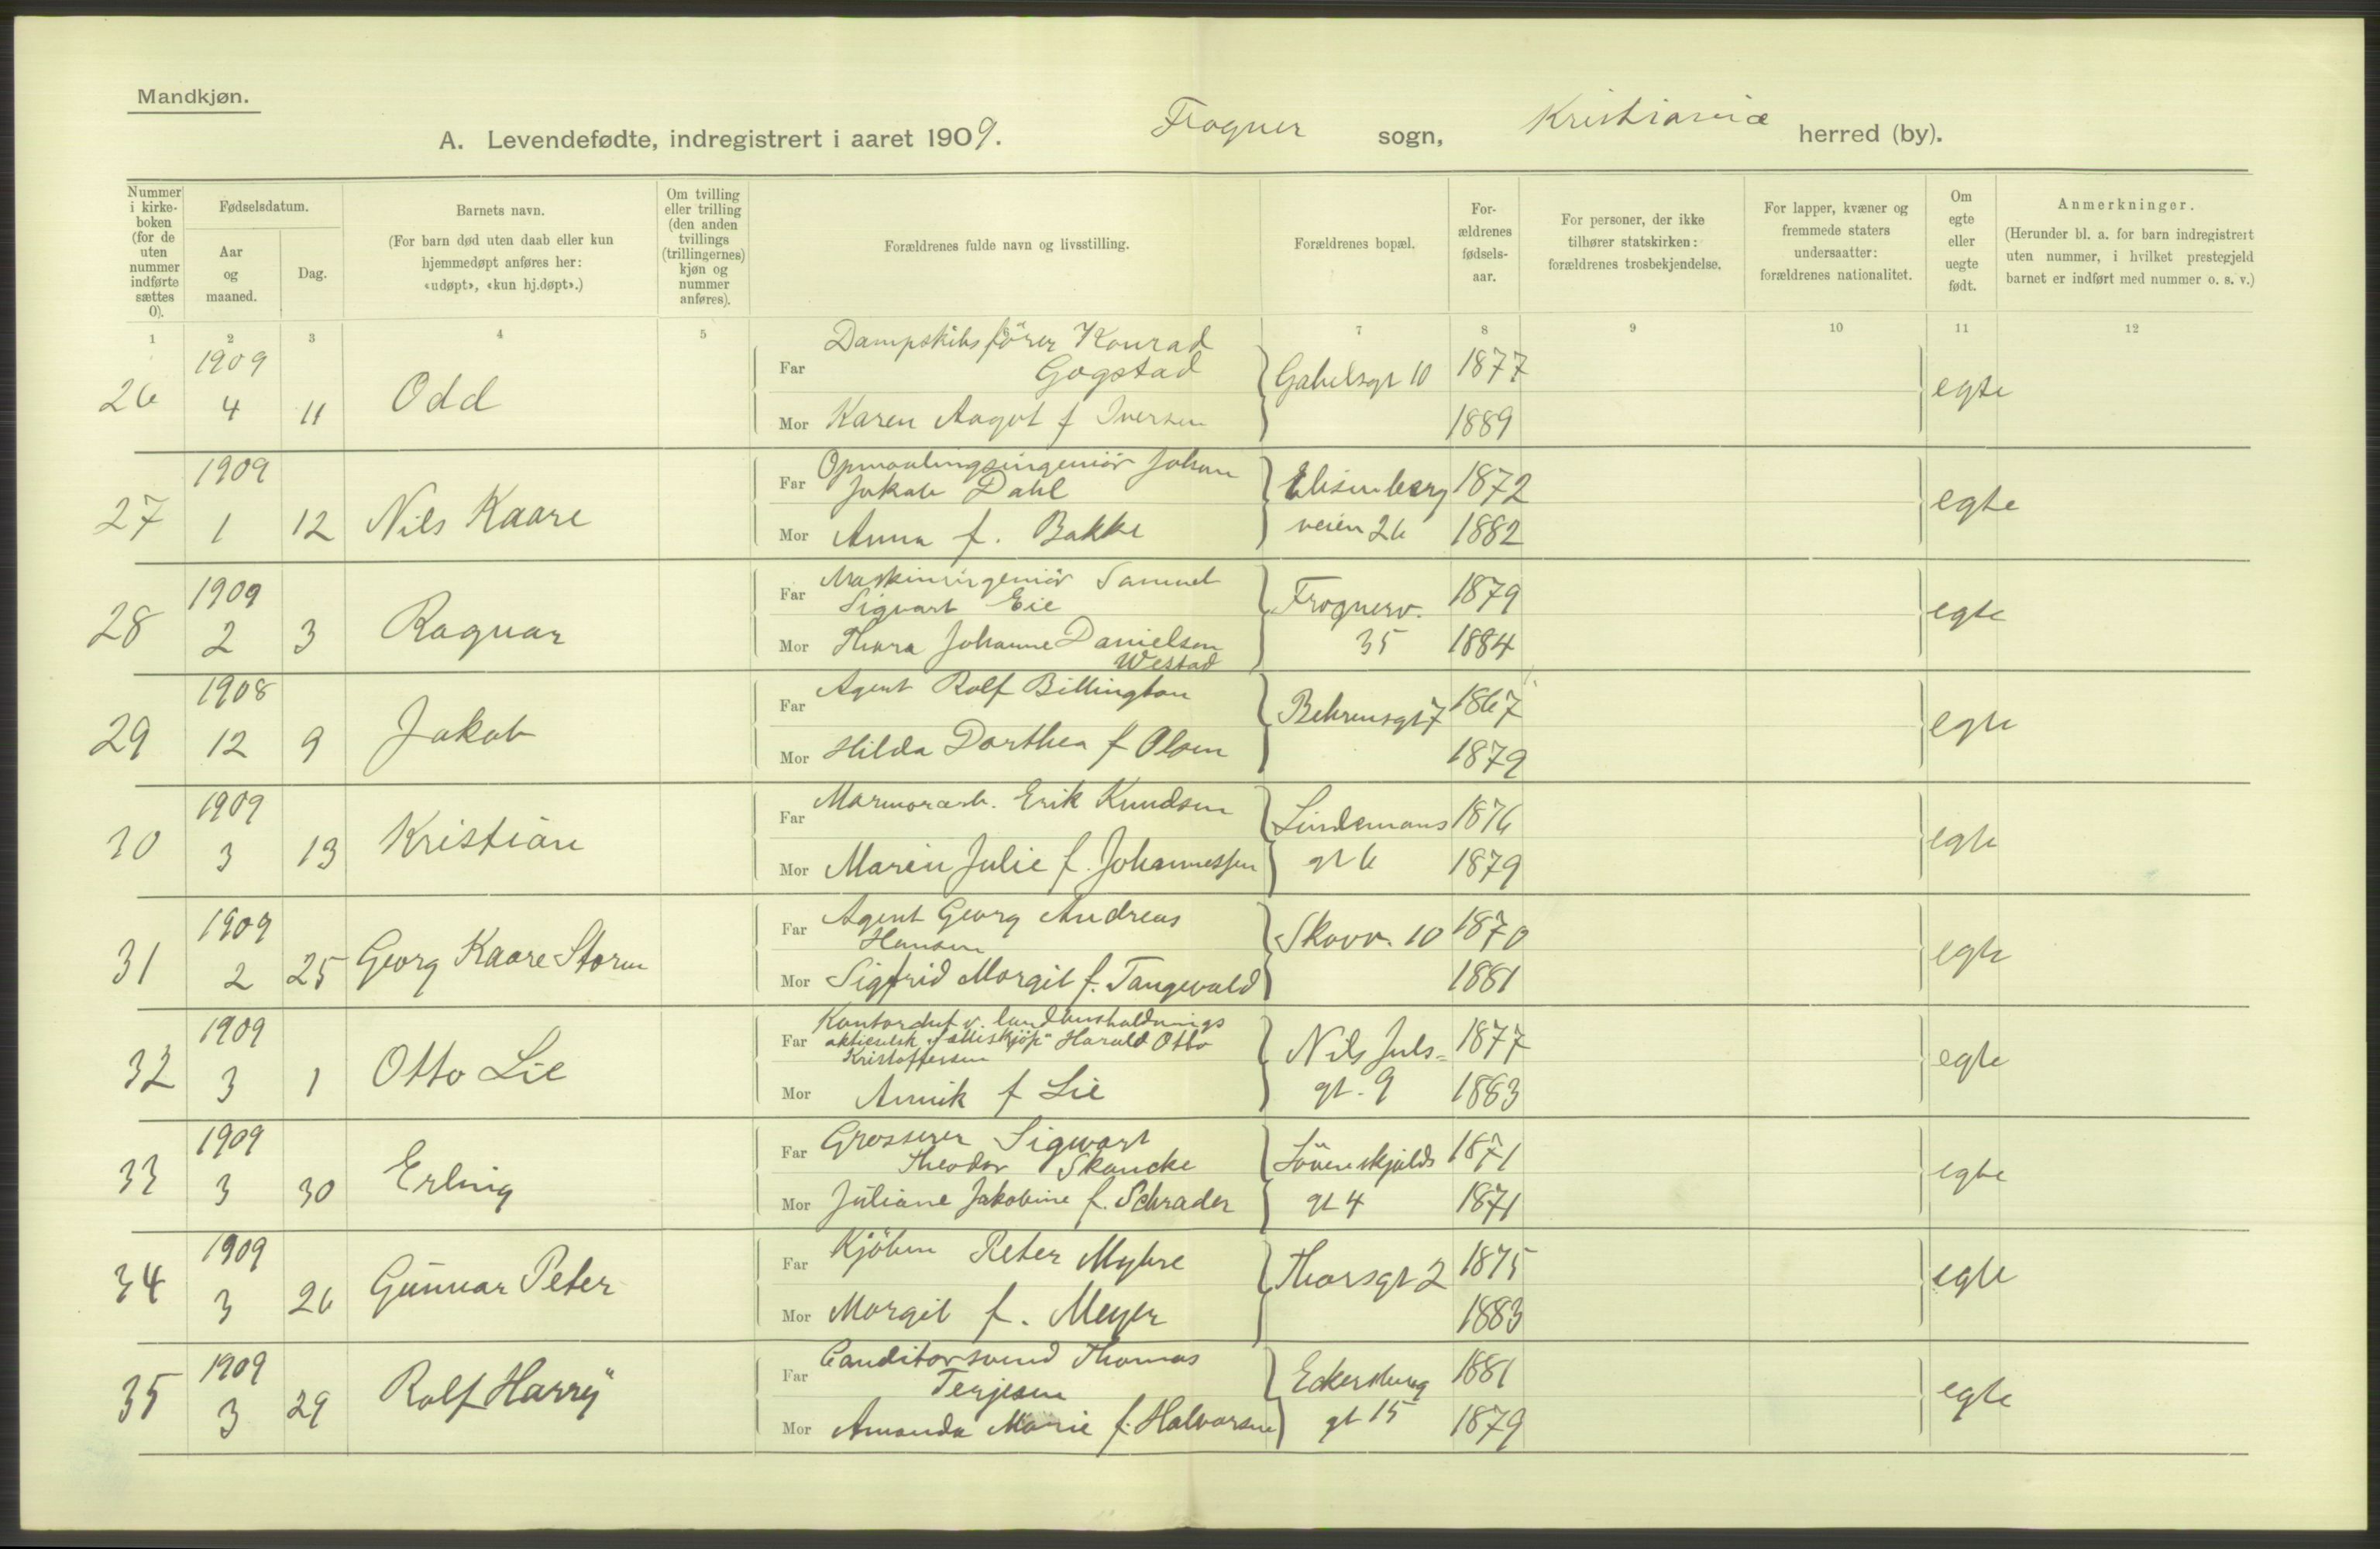 Mandkjøn.
A. Levendefødte, indregistrert i aaret 1909. Frogner sogn, Kristiania herred (by).
Nummer i kirke-boken (for de uten nummer indførte sættes 0).
Fødselsdatum.
Aar og maaned.
Dag.
Barnets navn.
(For barn død uten daab eller kun hjemmedøpt anføres her: «udøpt», «kun hj.døpt».)
Om tvilling eller trilling (den anden tvillings (trillingernes) kjøn og nummer anføres).
Forældrenes fulde navn og livsstilling.
Forældrenes bopæl.
For-ældrenes fødsels-aar.
For personer, der ikke tilhører statskirken: forældrenes trosbekjendelse.
For lapper, kvæner og fremmede staters undersaatter: forældrenes nationalitet.
Om egte eller uegte født.
Anmerkninger.
(Herunder bl. a. for barn indregistrert uten nummer, i hvilket prestegjeld barnet er indført med nummer o. s. v.)
1 2 3 4 5 7 8 9 10 11 12
26 1909 4 11 Odd
Far Dampskibsfører Konrad
Gogstad
Mor Karen Aagot f Iversen
Gabelsgt 10 1877
1889
egte
27 1909 1 12 Nils Kaare
Far Opmaalingsingeniör Johan
Jakob Dahl
Mor Anna f. Bakke
Elisenberg 1872
veien 26 1882
egte
28 1909 2 3 Ragnar
Far Maskiningeniör Samuel
Sigvart Eie
Mor Thora Johanne Danielsen
Westad
Frognerv. 1879
35 1884
egte
29 1908 12 9 Jakob
Far Agent Rolf Billington
Mor Hilda Dorthea f Olsen
Behrensgt 7 1867
1879
egte
30 1909 3 13 Kristian
Far Marmorarb. Erik Knudsen
Mor Maren Julie f. Johannessen
Lindemans 1876
gt 6 1879
egte
31 1909 2 25 Georg Kaare Storm
Far Agent Georg Andreas
Hansen
Mor Sigfrid Margit f. Tangevald
Skovv. 10 1870
1881
egte
32 1909 3 1 Otto Lie
Far Kontorchef v. landhusholdnings
aktieselsk "Fælleskjöp" Harald Otto
Kristoffersen
Mor Annik f Lie
Nils Juls- 1877
gt. 9 1883
egte
33 1909 3 30 Erling
Far Grosserer Sigwart
Theodor Skancke
Mor Juliane Jakobine f. Schrader
Lövenskjolds 1871
gt 4 1871
egte
34 1909 3 26 Gunnar Peter
Far Kjöbm Peter Myhre
Mor Margit f. Meyer
Thorsgt 2 1875
1883
egte
35 1909 3 29 Rolf Harry
Far Conditorsvend Thomas
Terjesen
Mor Amanda Marie f. Halvorsen
Eckersberg 1881
gt 15 1879
egte